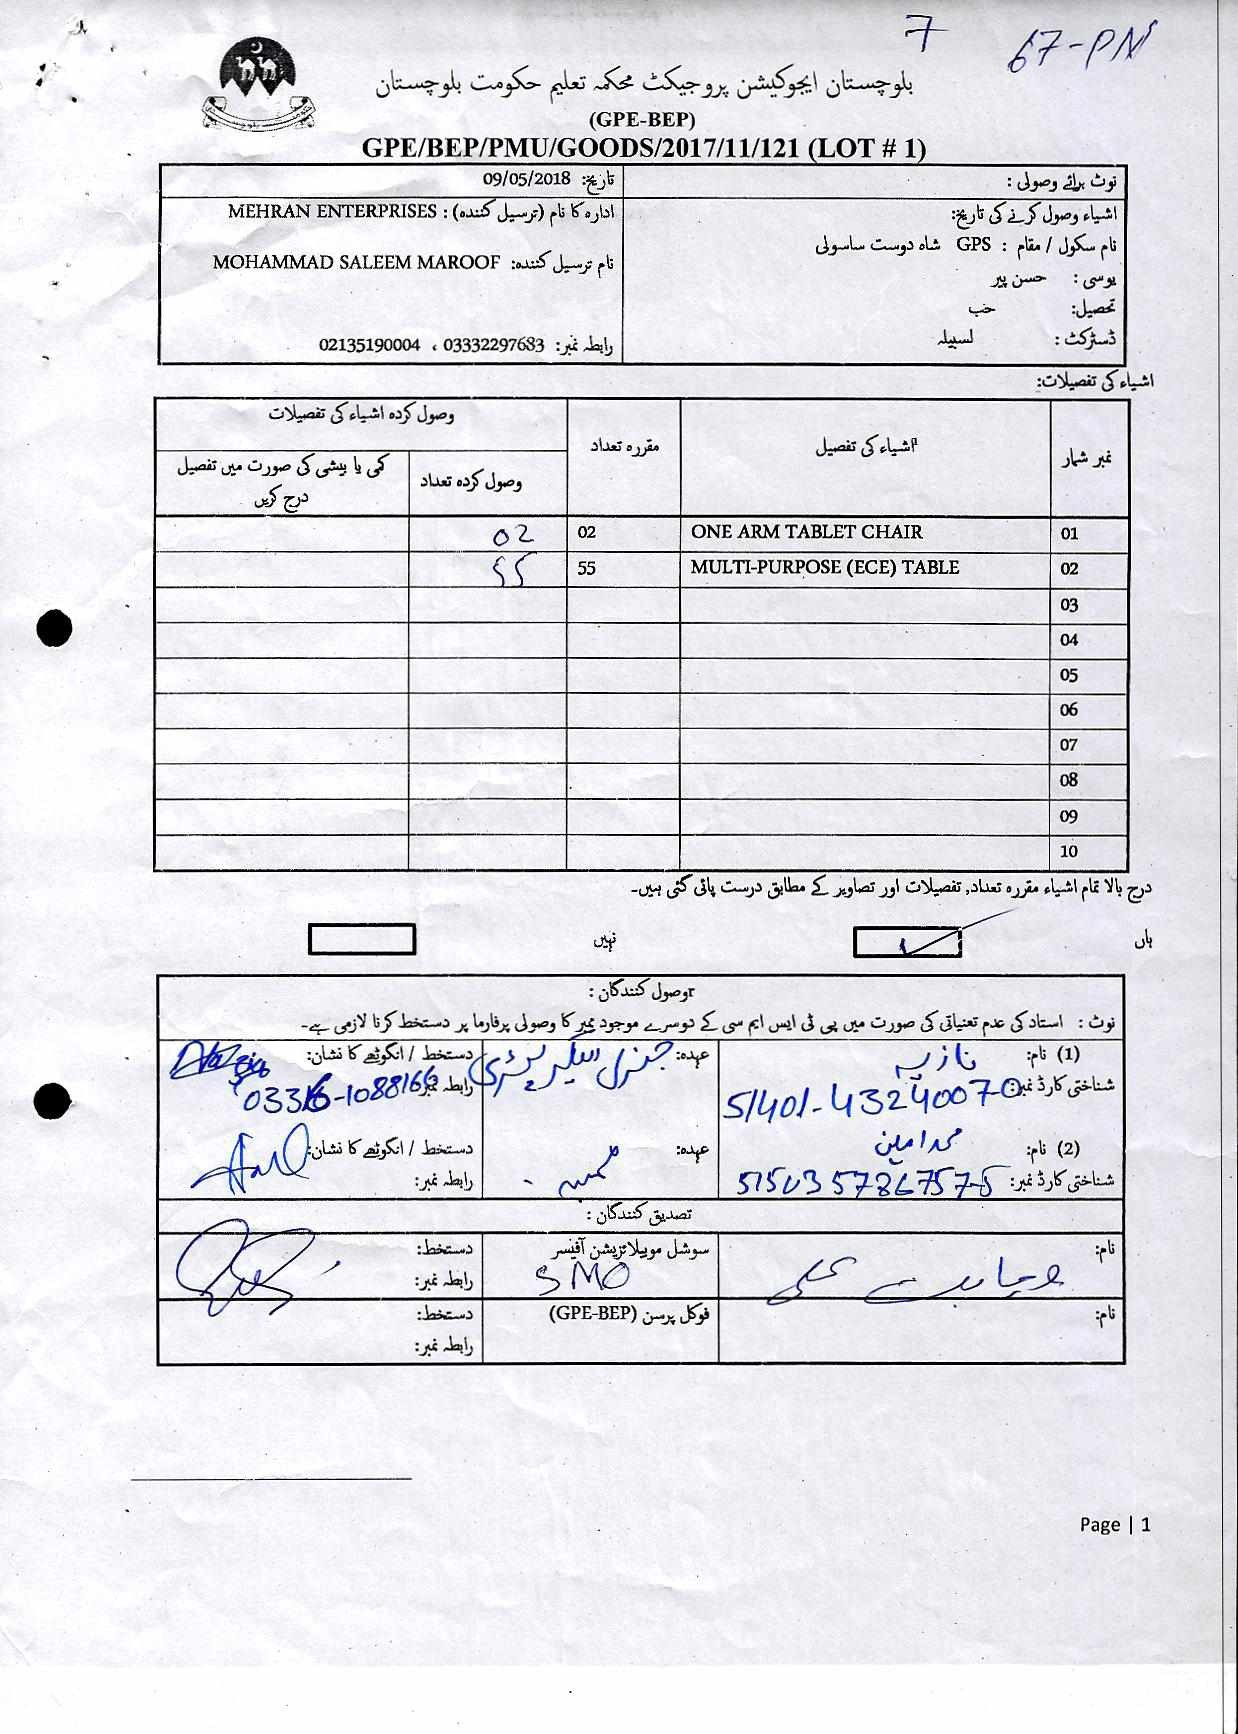 7
67-PN
بلوچستان ایجوکیشن پروجیکٹ محکمہ تعلیم حکومت بلوچستان
(GPE-BEP)
GPE/BEP/PMU/GOODS/2017/11/121 (LOT # 1)
نوٹ برائے وصولی :
تاریخ: 09/05/2018
اشیاء وصول کرنے کی تاریخ:
نام سکول / مقام : GPS شاہ دوست ساسولی
یوسی : حسن پیر
تحصیل: حب
ڈسٹرکٹ : لسبیلہ
ادارہ کا نام (ترسیل کنندہ) : MEHRAN ENTERPRISES
نام ترسیل کنندہ: MOHAMMAD SALEEM MAROOF
رابطہ نمبر: 03332297683 ، 02135190004
اشیاء کی تفصیلات:
نمبر شمار اشیاء کی تفصیل مقررہ تعداد وصول کردہ اشیاء کی تفصیلات
وصول کردہ تعداد کمی یا بیشی کی صورت میں تفصیل درج کریں
01 ONE ARM TABLET CHAIR 02 02
02 MULTI-PURPOSE (ECE) TABLE 55 55
03
04
05
06
07
08
09
10
درج بالا تمام اشیاء مقررہ تعداد, تفصیلات اور تصاویر کے مطابق درست پائی گئی ہیں۔
ہاں نہیں
وصول کنندگان :
نوٹ : استاد کی عدم تعیناتی کی صورت میں پی ٹی ایس ایم سی کے دوسرے موجود ممبر کا وصولی پرفارما پر دستخط کرنا لازمی ہے۔
(1) نام: نازیہ عہدہ: جنرل سیکریٹری دستخط / انگوٹھے کا نشان: Nazia
شناختی کارڈ نمبر: 51401-4324007-0 رابطہ نمبر: 03316-1088166
(2) نام: محمد امین عہدہ: ممبر دستخط / انگوٹھے کا نشان:
شناختی کارڈ نمبر: 51503 5786757-5 رابطہ نمبر:
تصدیق کنندگان :
نام: سوشل موبیلائزیشن آفیسر دستخط:
SMO رابطہ نمبر:
نام: فوکل پرسن (GPE-BEP) دستخط:
رابطہ نمبر:
Page | 1